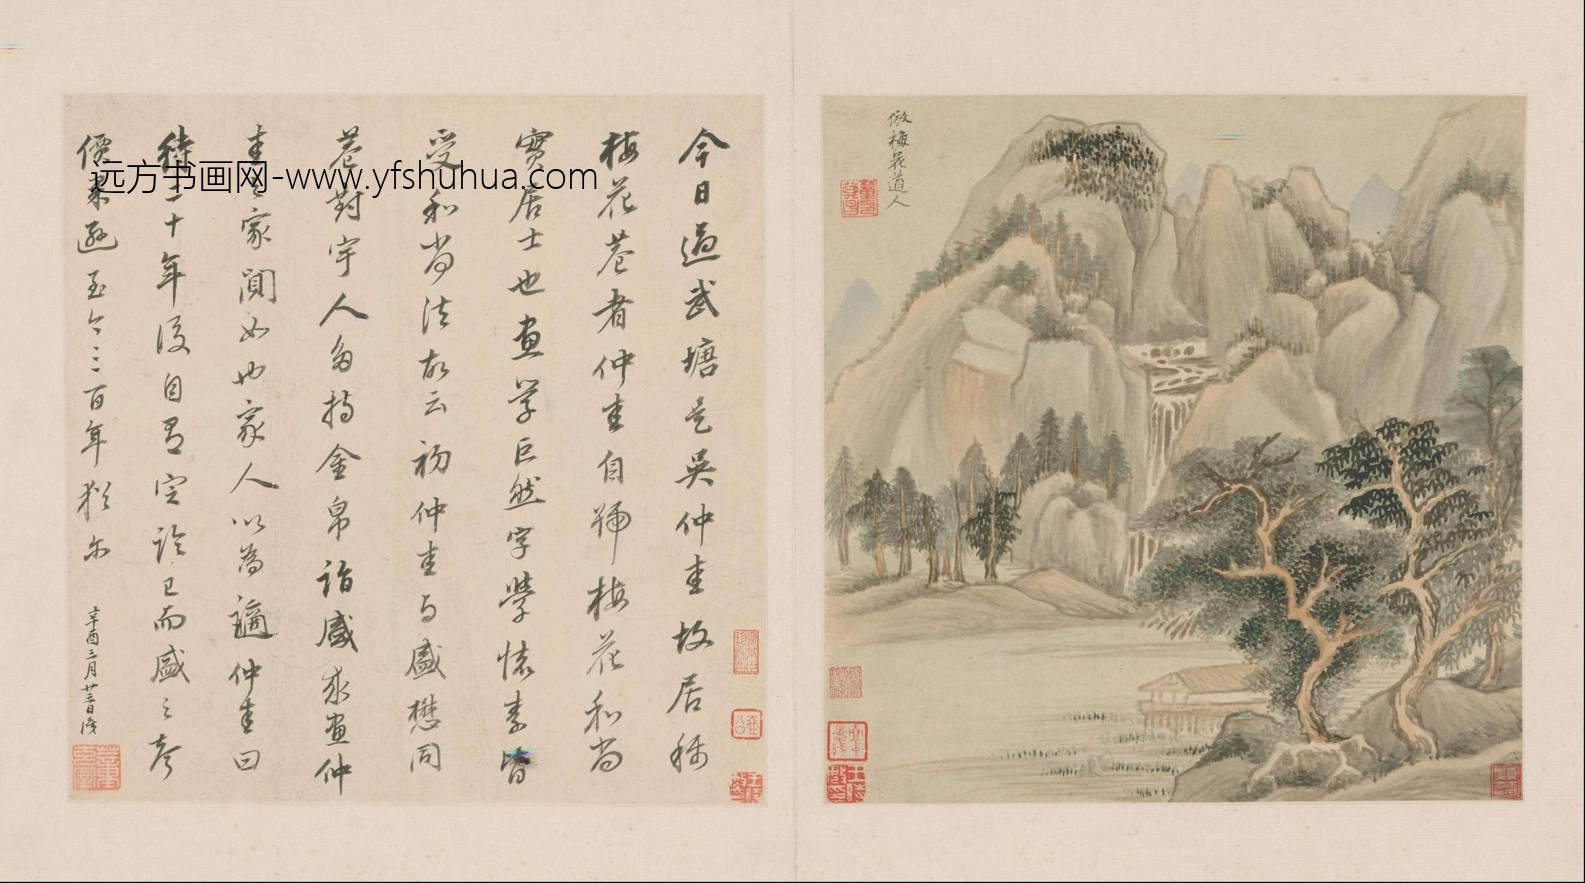 倣梅花道人
今日過武塘是吳仲圭故居稱
梅花菴者仲圭自號梅花和尚
實居士也畫學巨然字學懷素皆
受和尚法故云初仲圭與盛懋同
菴對宇人多持金帛詣盛求畫仲
圭之家闃如也家人以為謫仲圭曰
待二十年後自有定論已而盛之声
價東遜至今三百年猶尓
辛酉三月廿三日
远方书画网-www.yfshuhua.com